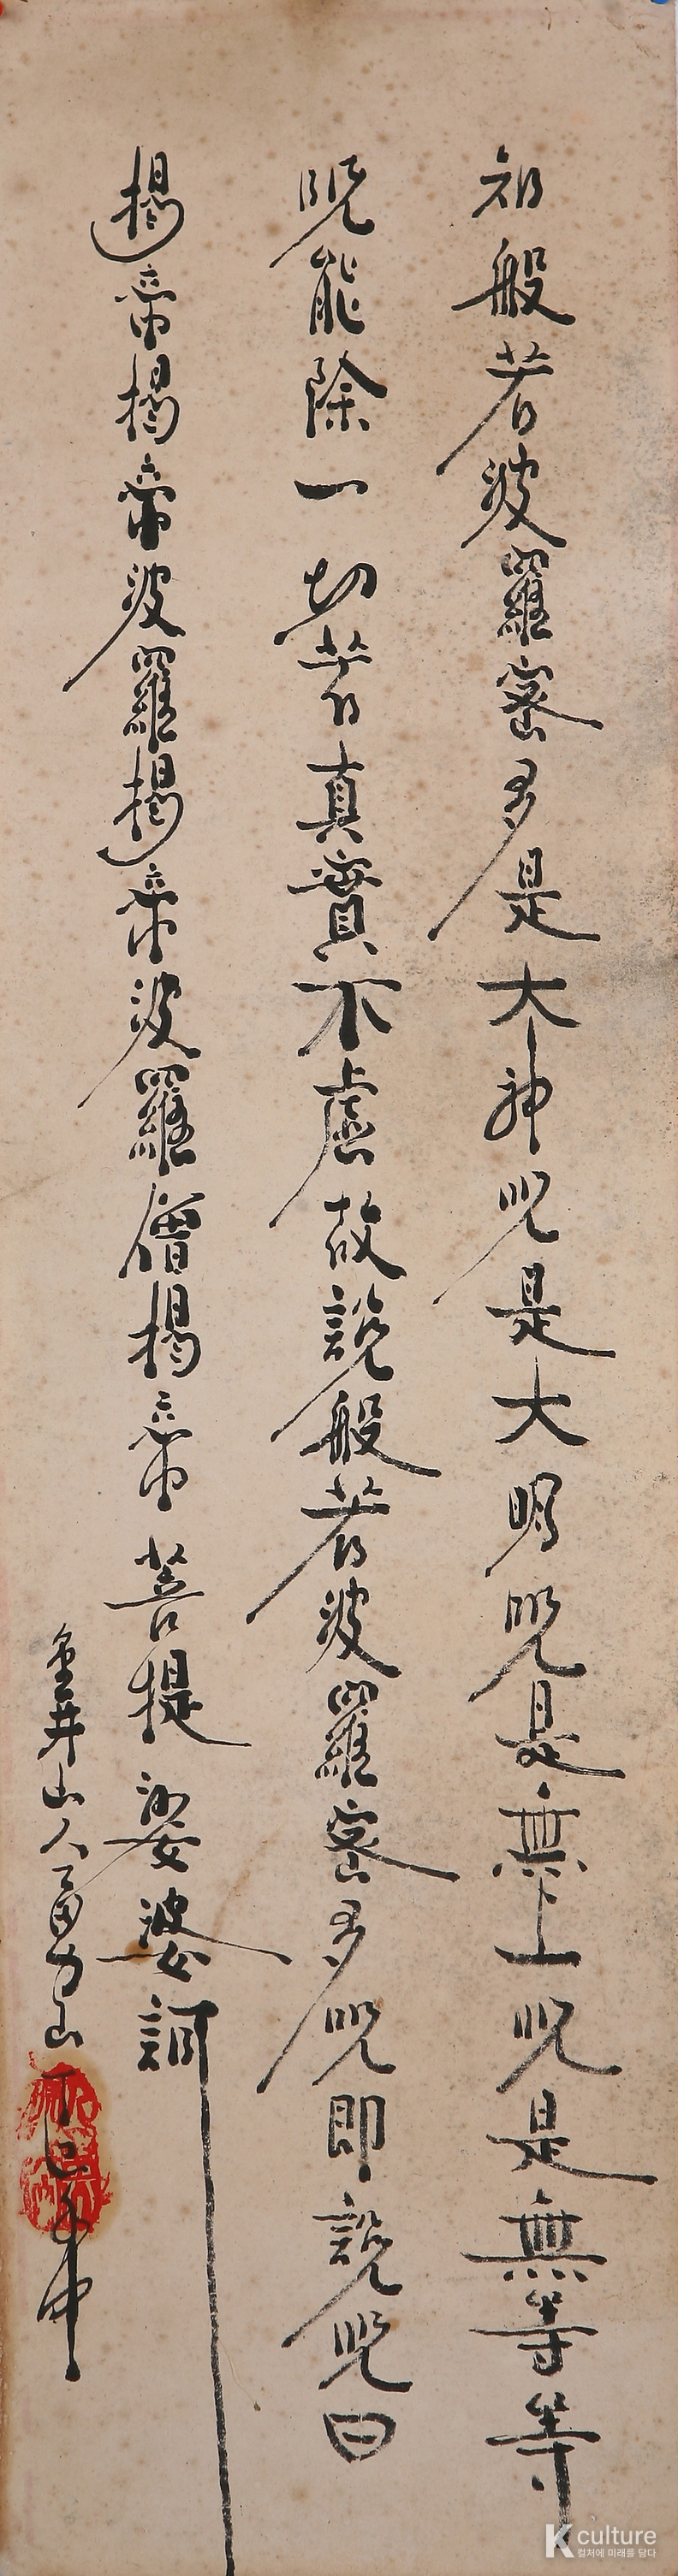 知般若波羅密多是大神呪是大明呪是無上呪是無等等
呪能除一切苦真實不虛故說般若波羅密多呪即說呪曰
揭帝揭帝波羅揭帝波羅僧揭帝菩提娑婆訶
金井山人
K culture
컬처에 미래를 담다